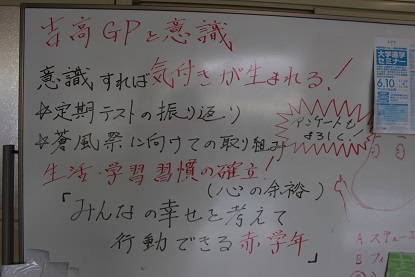 吉高GPと意識
意識すれば気付きが生まれる！
☆定期テストの振り返り
☆蒼風祭に向けての取り組み
アンケートも
よろしく！
生活・学習習慣の確立！
（心の余裕）
「みんなの幸せを考えて
行動できる赤学年」
大学進学
セミナー
6.10
A スティ
B フィ